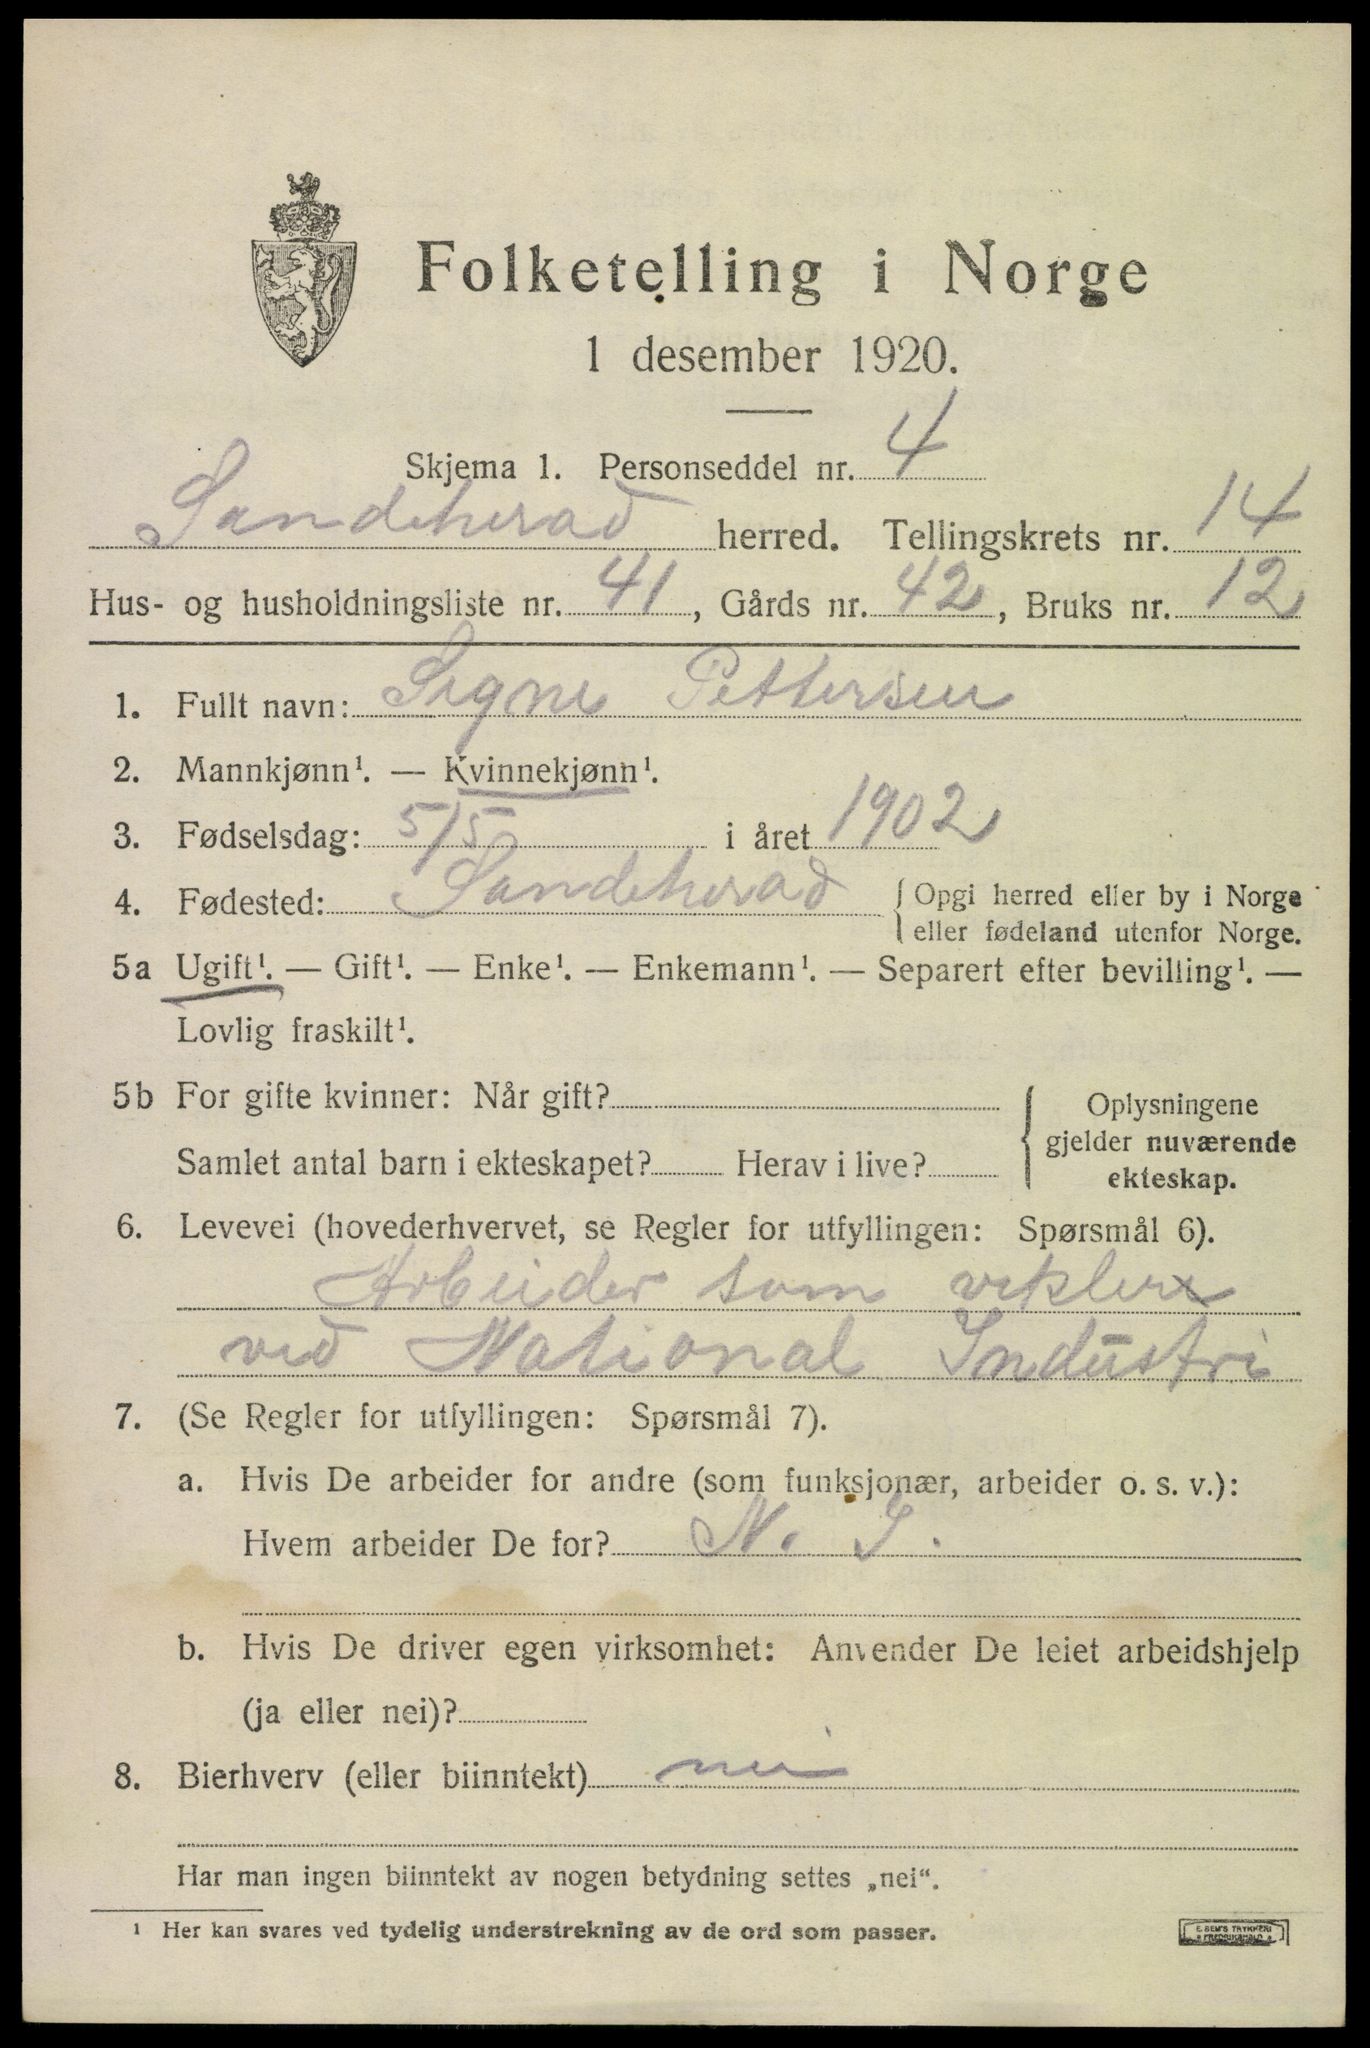 Folketelling i Norge
1 desember 1920.
Skjema 1. Personseddel nr. 4
Sandeherad herred. Tellingskrets nr. 14
Hus- og husholdningsliste nr. 41, Gårds nr. 42, Bruks nr. 12
1. Fullt navn: Signe Pettersen
2. Mannkjønn¹. — Kvinnekjønn¹.
3. Fødselsdag: 5/5 i året 1902
4. Fødested: Sandeherad { Opgi herred eller by i Norge
eller fødeland utenfor Norge.
5a Ugift¹. — Gift¹. — Enke¹. — Enkemann¹. — Separert efter bevilling¹. —
Lovlig fraskilt¹.
5b For gifte kvinner: Når gift?
Samlet antal barn i ekteskapet? Herav i live?
Oplysningene
gjelder nuværende
ekteskap.
6. Levevei (hovederhvervet, se Regler for utfyllingen: Spørsmål 6).
Arbeider som vikler
ved National Industri
7. (Se Regler for utfyllingen: Spørsmål 7).
a. Hvis De arbeider for andre (som funksjonær, arbeider o. s. v.):
Hvem arbeider De for? N. I.
b. Hvis De driver egen virksomhet: Anvender De leiet arbeidshjelp
(ja eller nei)?
8. Bierhverv (eller biinntekt) nei
Har man ingen biinntekt av nogen betydning settes „nei“.
¹ Her kan svares ved tydelig understrekning av de ord som passer.
E. SEM'S TRYKKERI
FREDRIKSHALD